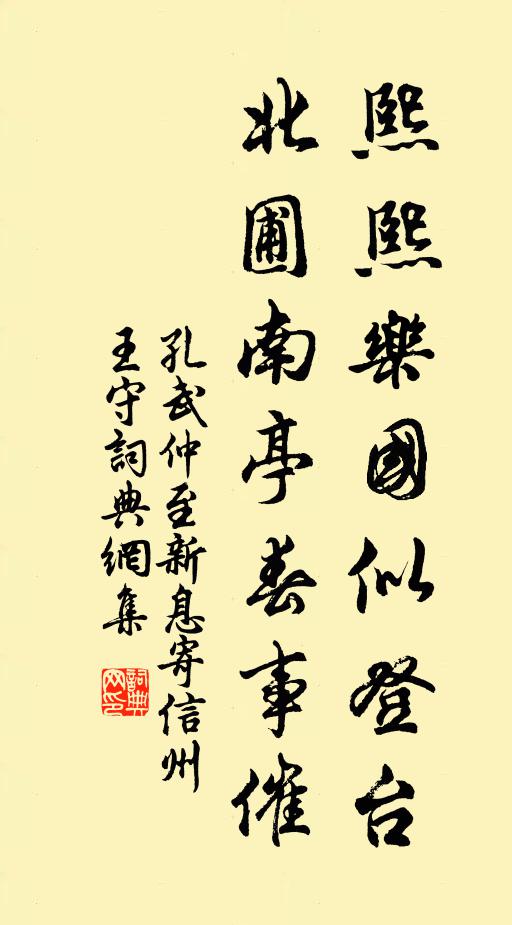 熙熙樂國似登台
北圃南亭春事催
孔武仲至新息寄信州
王守詞典網集
詞典網印